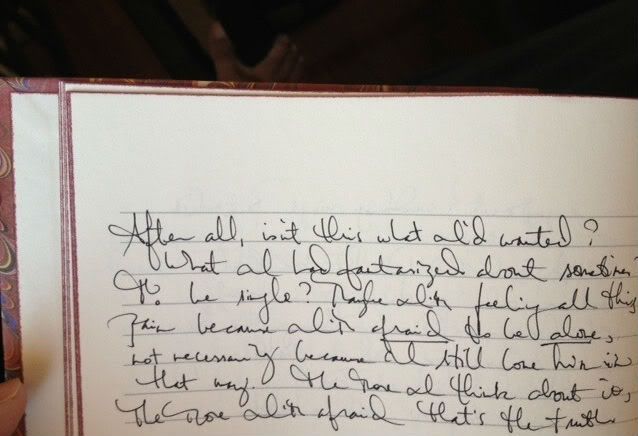 After all, isn't this what I'd wanted?
What I had fantasized about sometimes?
To be single? Maybe I'm feeling all this
pain because I'm afraid to be alone,
not necessarily because I still love him in
that way. The more I think about it,
the more I'm afraid that's the truth.